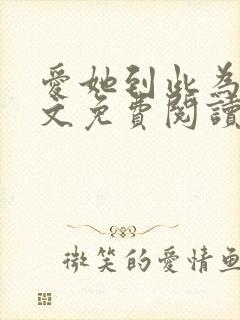 愛她到此為
文免費閱讀
微笑的愛情魚